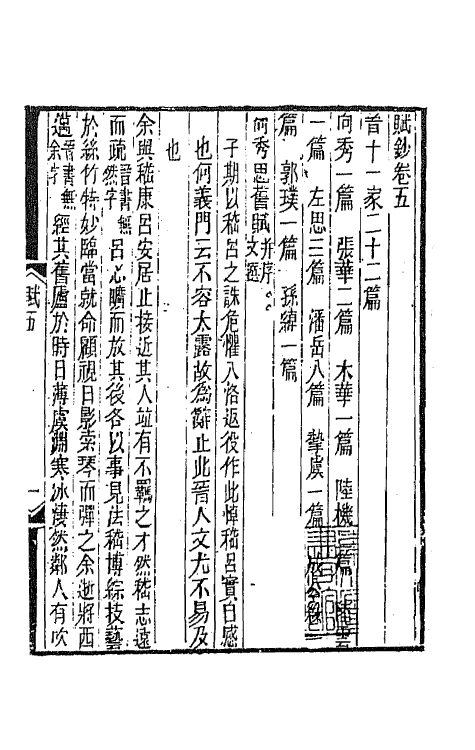 賦鈔卷五
晉十一家二十二篇
向秀一篇 張華二篇 木華一篇 陸機三篇
一篇 左思三篇 潘岳八篇 摯虞一篇 成公綏
篇 郭璞一篇 孫綽一篇
向秀思舊賦并序 文選
子期以嵇呂之誅危懼入洛返役作此悼嵇呂實自感
也何義門云不容太露故爲辭止此晉人文尤不易及
也
余與嵇康呂安居止接近其人竝有不羈之才然嵇志遠
而疏晉書無然字呂心曠而放其後各以事見法嵇博綜技藝
於絲竹特妙臨當就命顧視日影索琴而彈之余逝將西
邁晉書無余字經其舊廬於時日薄虞淵寒冰悽然鄰人有吹
賦五
一